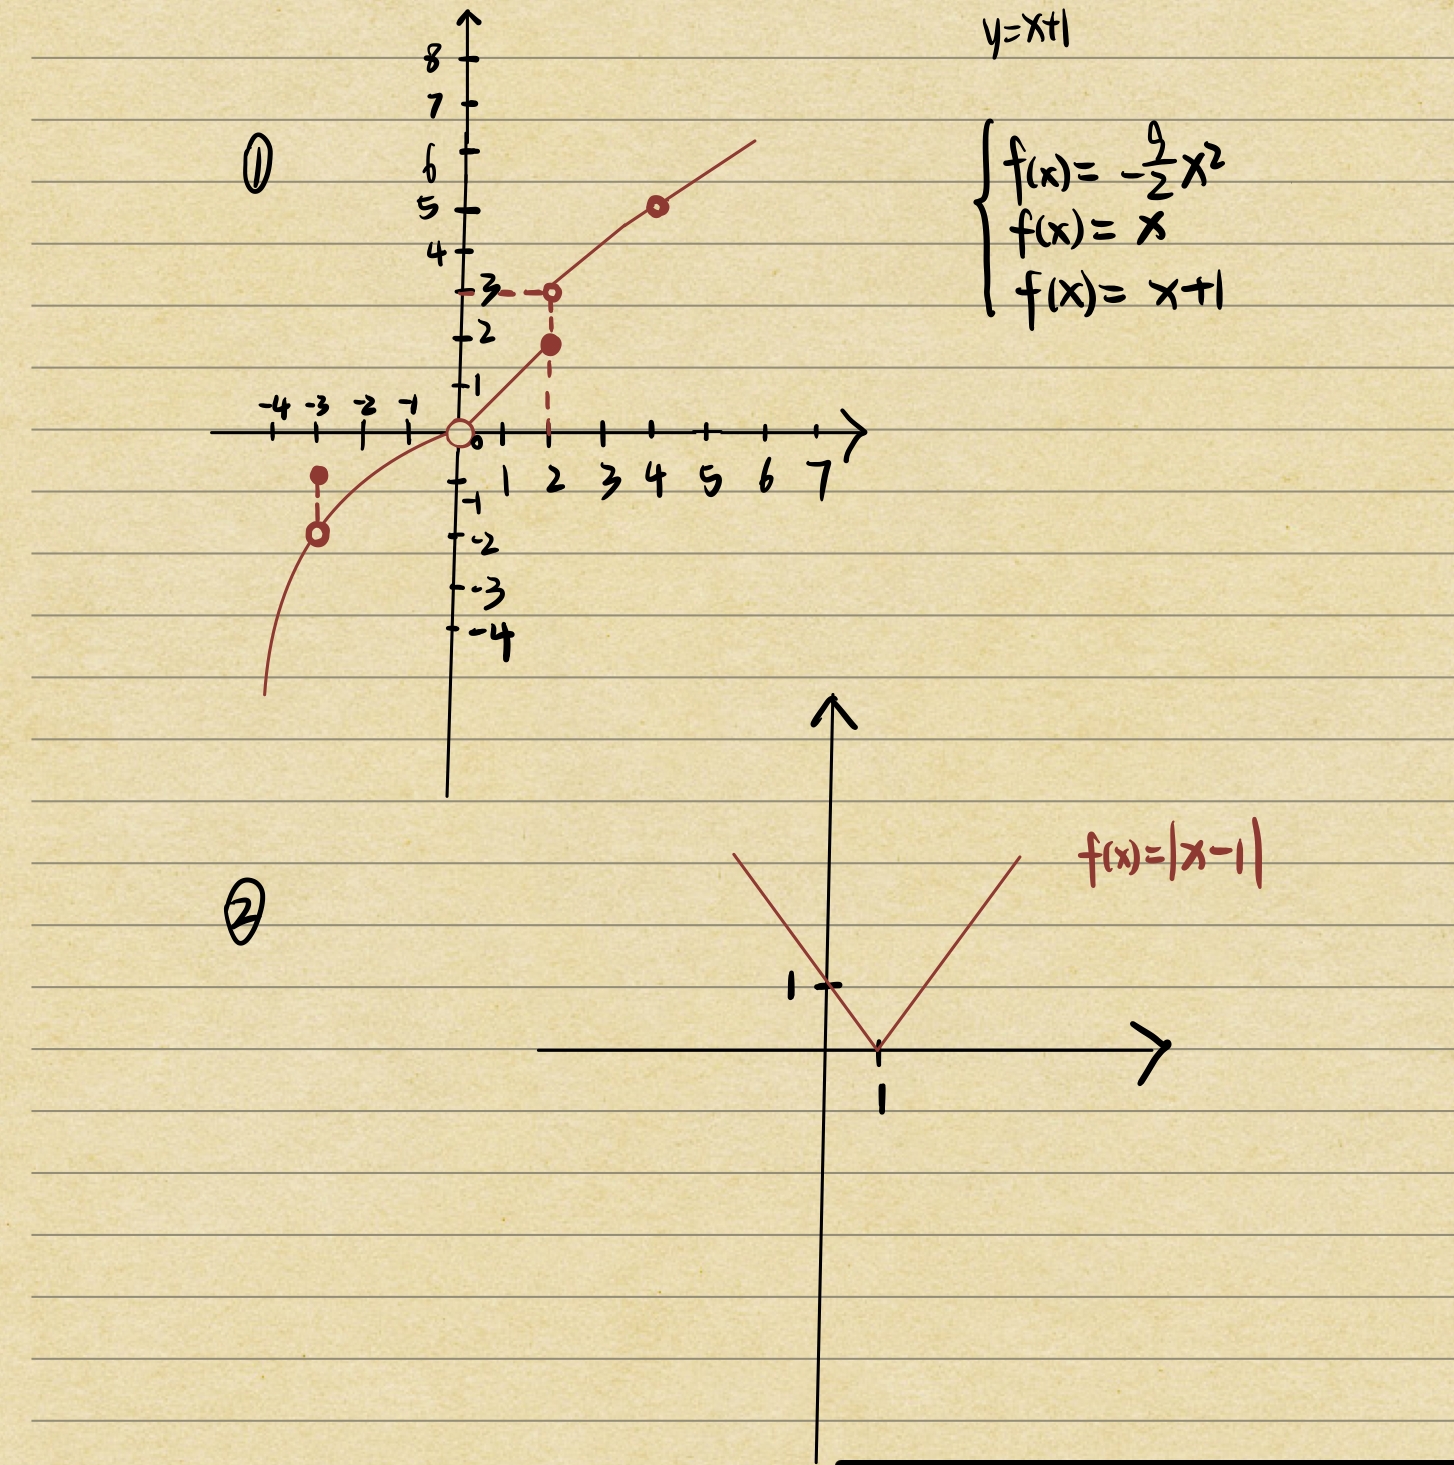 y=x+1
①
8
7
6
5
4
3
2
1
-4 -3 -2 -1
0 1 2 3 4 5 6 7
-1
-2
-3
-4
f(x)= -9/2 x²
f(x)= x
f(x)= x+1
②
f(x)=|x-1|
1
1